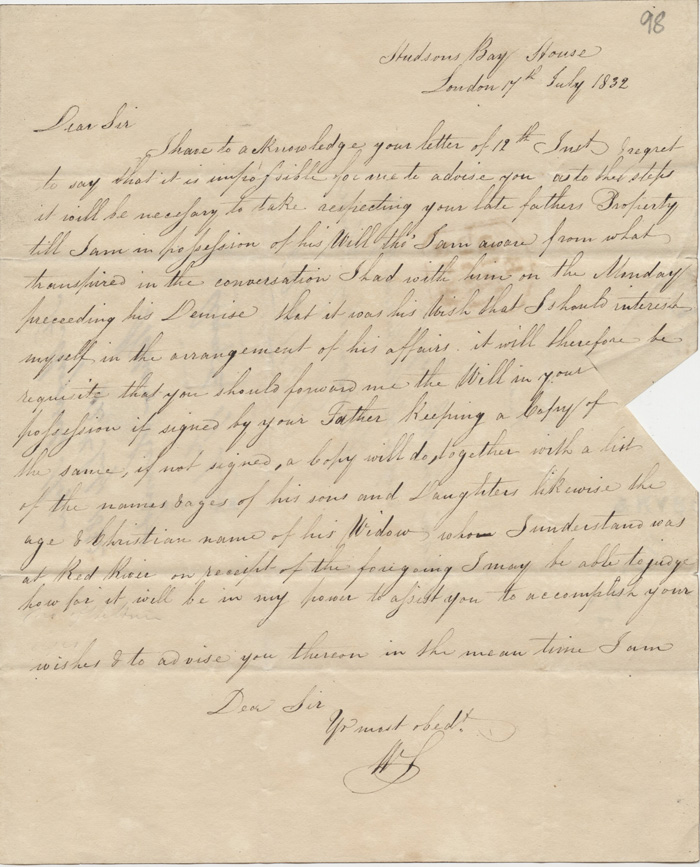 98
Hudsons Bay House
London 17th July 1832
Dear Sir
I have to acknowledge your letter of 12th Inst & regret
to say that it is impossible for me to advise you as to the steps
it will be necessary to take respecting your late fathers Property
till I am in possession of his Will tho' I am aware from what
transpired in the conversation I had with him on the Monday
preceeding his Demise that it was his Wish that I should interest
myself in the arrangement of his affairs. it will therefore be
requisite that you should forward me the Will in your
possession if signed by your Father keeping a Copy of
the same, if not signed, a Copy will do, together with a list
of the names & ages of his sons and Daughters likewise the
age & Christian name of his Widow whom I understand was
at Red River on receipt of the foregoing I may be able to judge
how far it will be in my power to assist you to accomplish your
wishes & to advise you thereon in the mean time I am
Dear Sir
Yr most obedt
WS